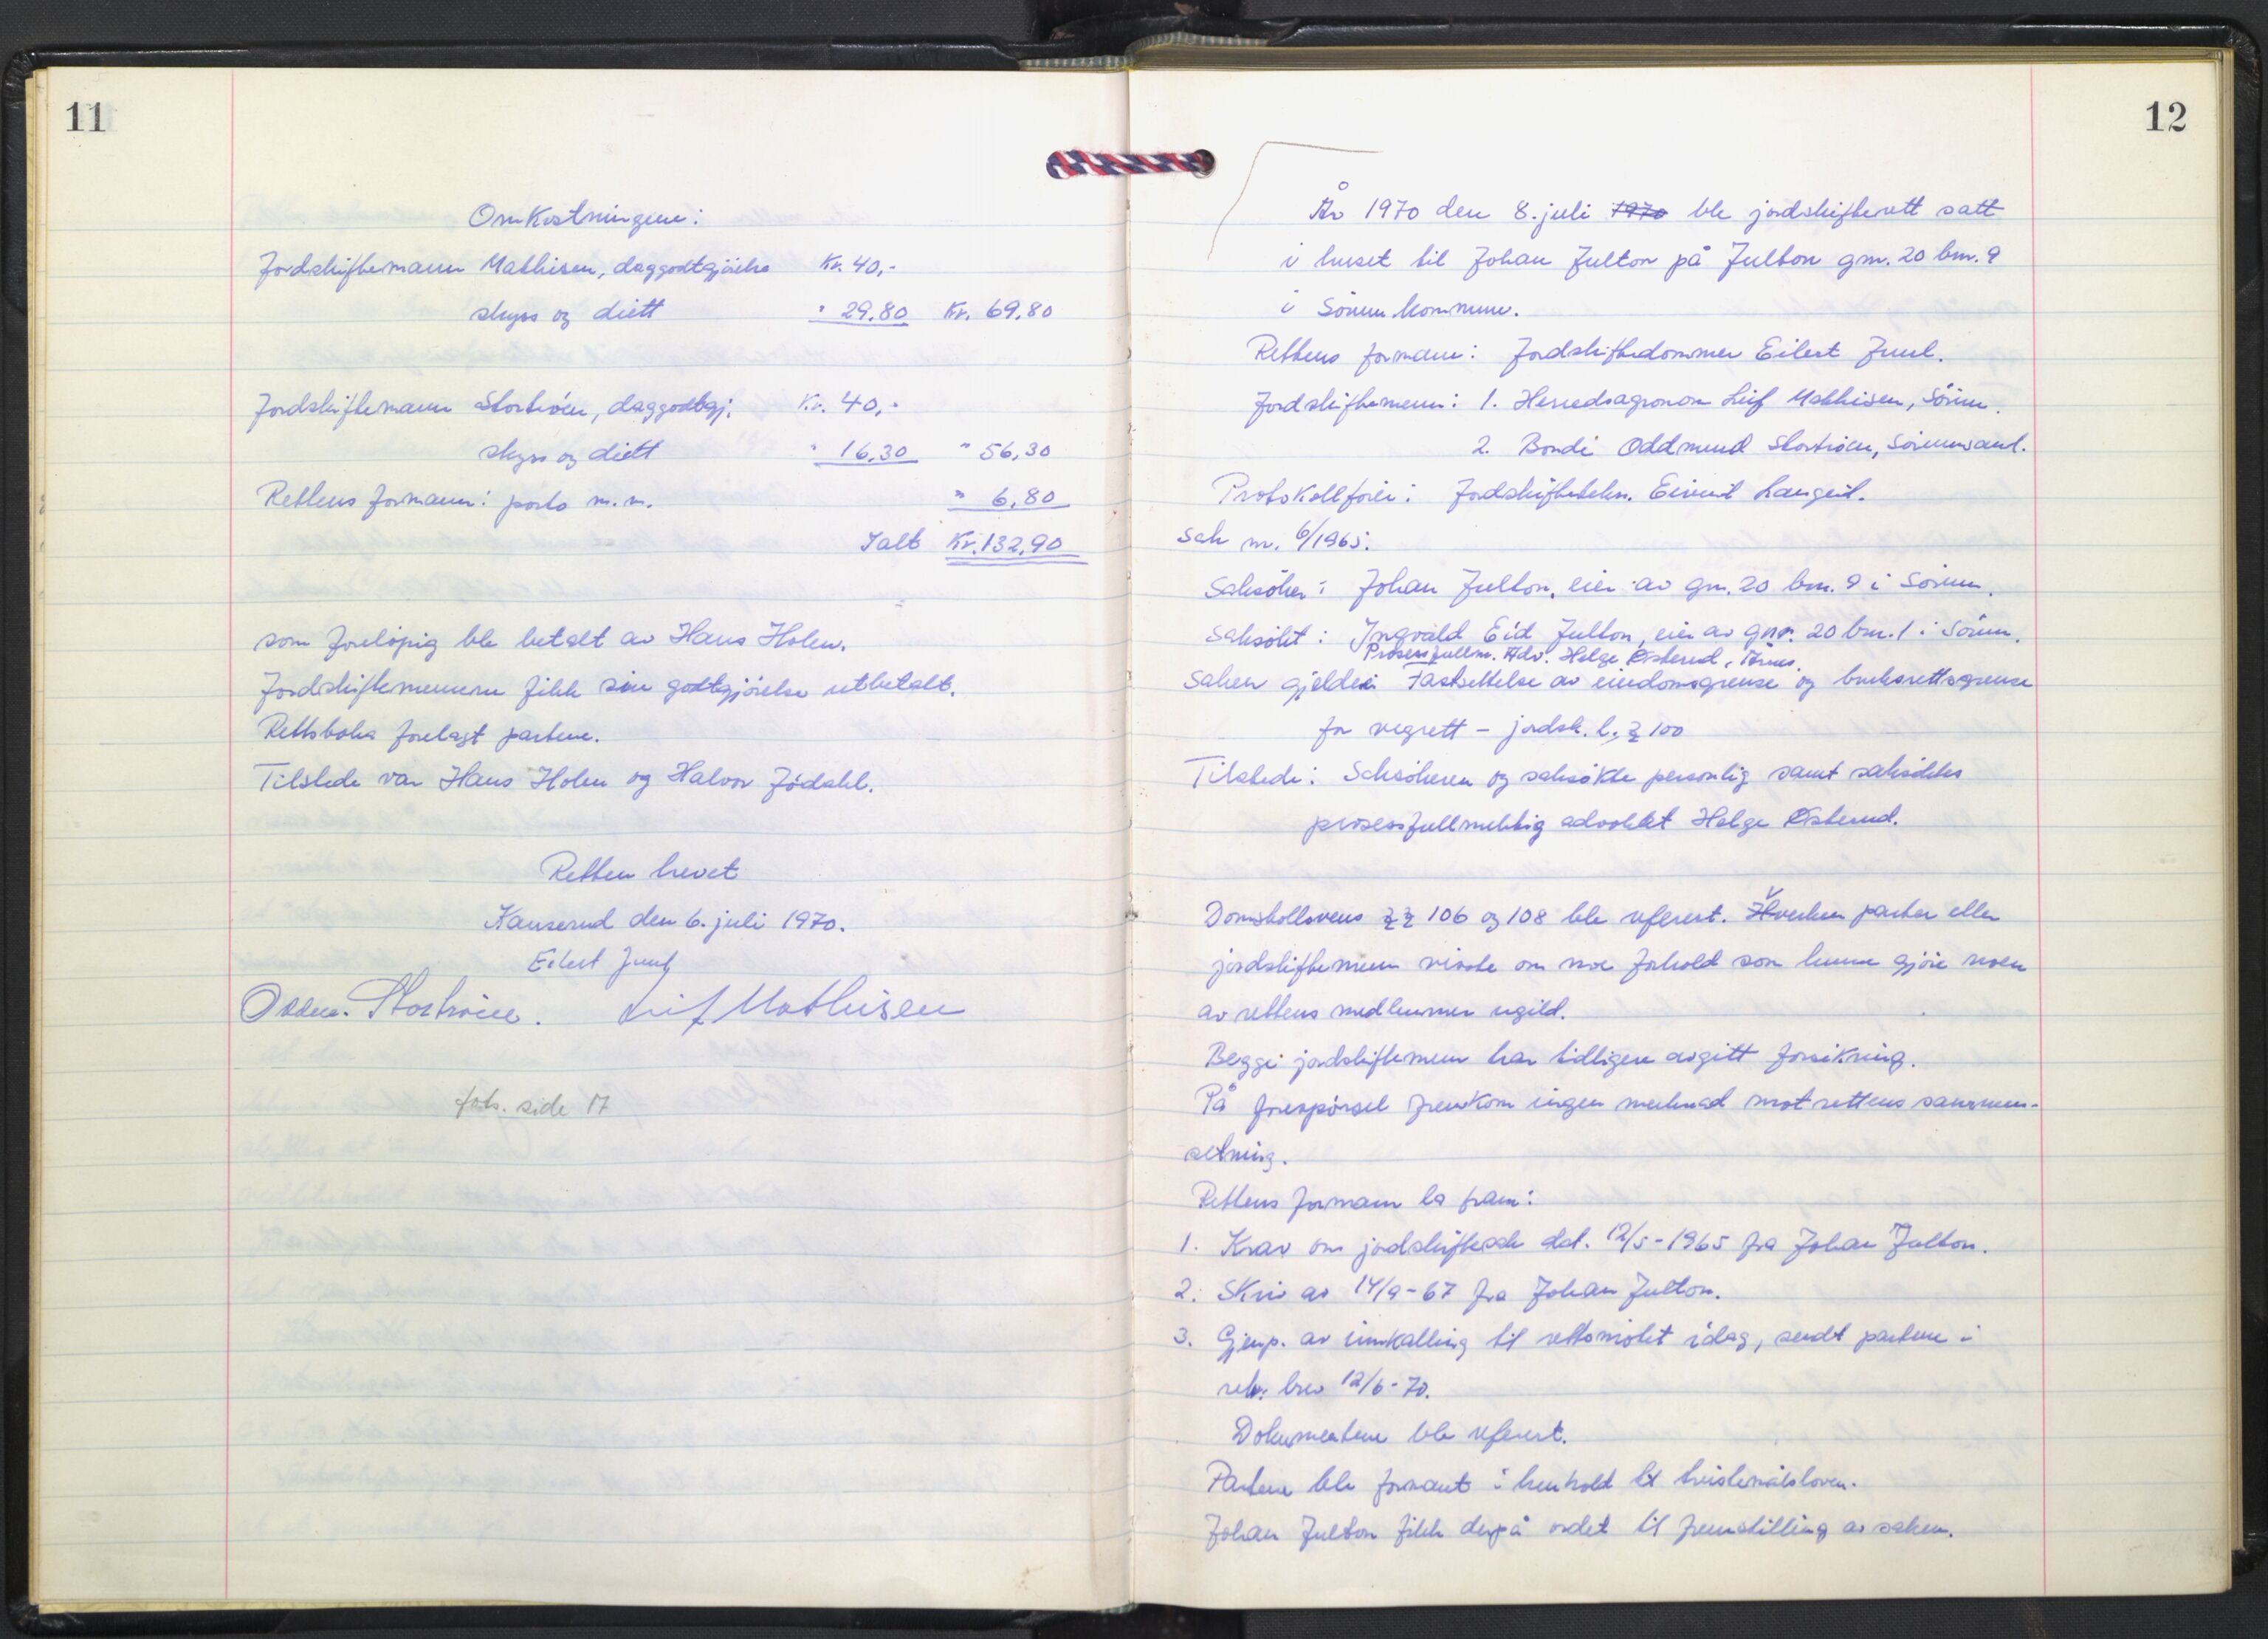 11
Omkostningene:
Jordskiftemann Mathisen, daggodtgjörelse Kr. 40,-
skyss og diett " 29,80 Kr. 69,80
Jordskiftemann Storhröen, daggodtgj. Kr. 40,-
skyss og diett " 16,30 " 56,30
Rettens formann: porto m.m. " 6,80
Ialt Kr. 132,90
som foreløpig ble betalt av Hans Holen.
Jordskiftemennene fikk sin godtgjörelse utbetalt.
Rettsboka forelagt partene.
Tilstede var Hans Holen og Halvor Jödahl.
Retten hevet
Kauserud den 6. juli 1970.
Eilert Juul
Oddm. Storhröen. Leif Mathisen
forts. side 17
12
År 1970 den 8. juli 1970 ble jordskifterett satt
i huset til Johan Julton på Julton gnr. 20 bnr. 9
i Sörum kommune.
Rettens formann: Jordskiftedommer Eilert Juul.
Jordskiftemenn: 1. Herredsagronom Leif Mathisen, Sörum.
2. Bonde Oddmund Storhröen, Sörumsand.
Protokollförer: Jordskiftetekn. Eivind Langeid.
Sak nr. 6/1965.
Saksöker: Johan Julton, eier av gnr. 20 bnr. 9 i Sörum.
Saksökt: Ingvald Eid Julton, eier av gnr. 20 bnr. 1 i Sörum.
Prosessfullm. Adv. Helge Østerud, Årnes.
Saken gjelder: Fastsettelse av eiendomsgrense og bruksrettsgrense
for vegrett - jordsk. l. § 100
Tilstede: Saksökeren og saksökte personlig samt saksöktes
prosessfullmektig advokat Helge Østerud.
Domstollovens §§ 106 og 108 ble referert. Hverken parter eller
jordskiftemenn visste om noe forhold som kunne gjöre noen
av rettens medlemmer ugild.
Begge jordskiftemenn har tidligere avgitt forsikring.
På forespörsel fremkom ingen merknad mot rettens sammen-
setning.
Rettens formann la fram:
1. Krav om jordskiftesak dat. 12/5-1965 fra Johan Julton.
2. Skriv av 14/9-67 fra Johan Julton.
3. Gjenp. av innkalling til rettsmötet idag, sendt partene i
rek. brev 12/6-70.
Dokumentene ble referert.
Partene ble formant i henhold til tvistemålsloven.
Johan Julton fikk derpå ordet til fremstilling av saken.